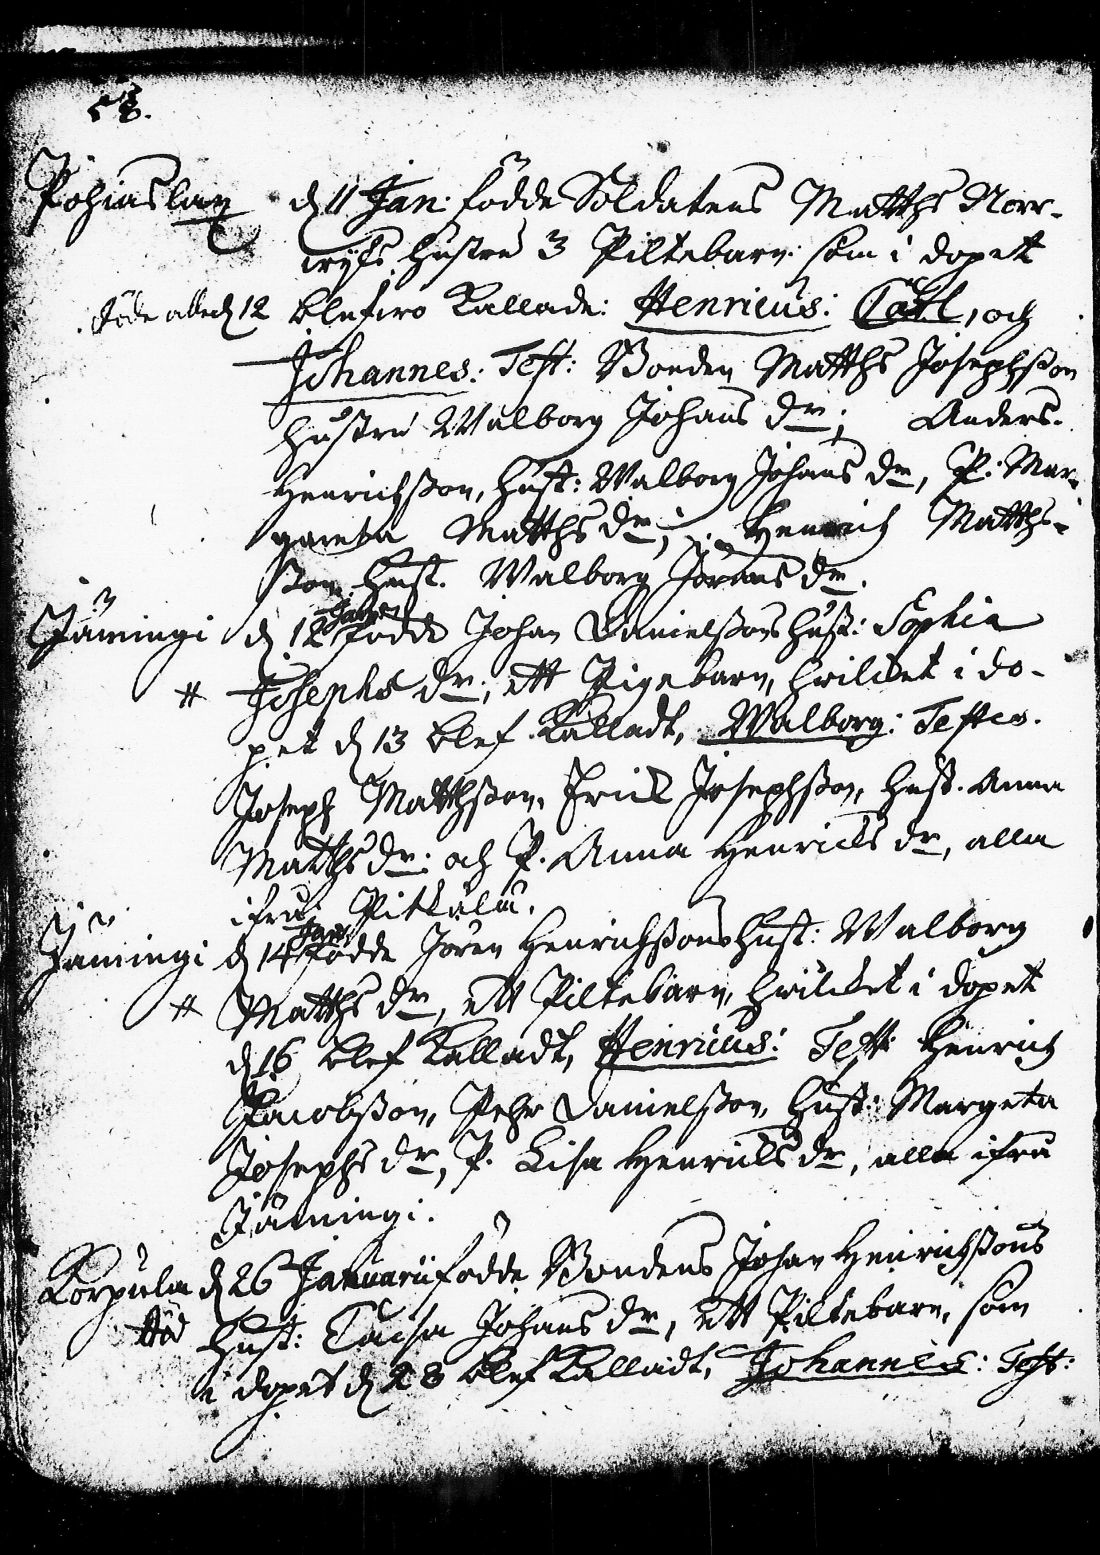 58.
Pohiaslax d. 11 Jan: födde Soldatens Matths Norr-
hustru 3 Piltebarn: som i dopet
döde alle d. 12 blefwo Kallade: Henricus: Carl, och
Johannes: Test: Bonden Matths Josephsson
hustru Walborg Johans dr; Anders
Henrichsson, Hust: Walborg Johans dr, P. Mar-
gareta Matths dr; Henrich Matths-
son Hust. Walborg Jörans dr.
Jämingi d. 12 Januar födde Johan Danielssons Hust: Sophia
# Josephs dr; ett Pigebarn, hwilket i do-
pet d. 13 blef Kalladt, Walborg: Testes.
Joseph Matthsson, Erick Josephsson, Hust. Anna
Matths dr: och P. Anna Henricks dr, alla
ifrån Pitkälä.
Jämingi d. 14 Janu födde Jören Henrichssons Hust: Walborg
# Matths dr, ett Piltebarn, hwilcket i dopet
d. 16 blef Kalladt, Henricus: Test: Henrich
Jacobsson, Pehr Danielsson, Hust: Margeta
Josephs dr, P. Lisa Henricks dr, alla ifrå
Jämingi.
Korpula d. 26 Januarii födde Bondens Johan Henrichssons
död Hust: Caisa Johans dr, ett Piltebarn, som
i dopet d. 28 blef Kalladt, Johannes: Test: